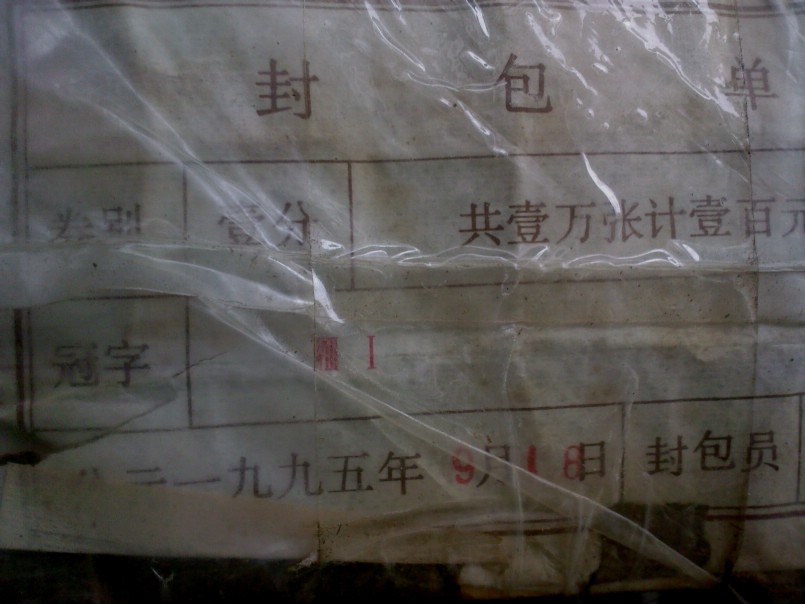 封包单
券别 壹分 共壹万张计壹百元
冠字 Ⅷ Ⅰ
公元一九九五年9月18日 封包员